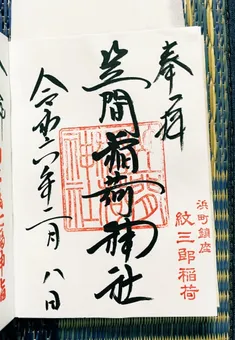 奉拝
浜町鎮座
紋三郎稲荷
笠間稲荷神社
令和六年二月八日